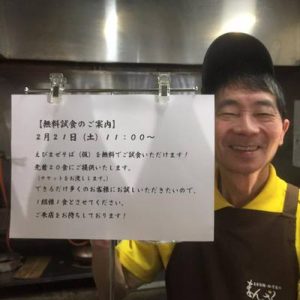 【無料試食のご案内】
2月21日（土）11：00～
えびまぜそば（仮）を無料でご試食いただけます！
先着20食にご提供いたします。
（チケットをお渡しします。）
できるだけ多くのお客様にお試しいただきたいので、
1組様1食とさせてください。
ご来店をお待ちしております！